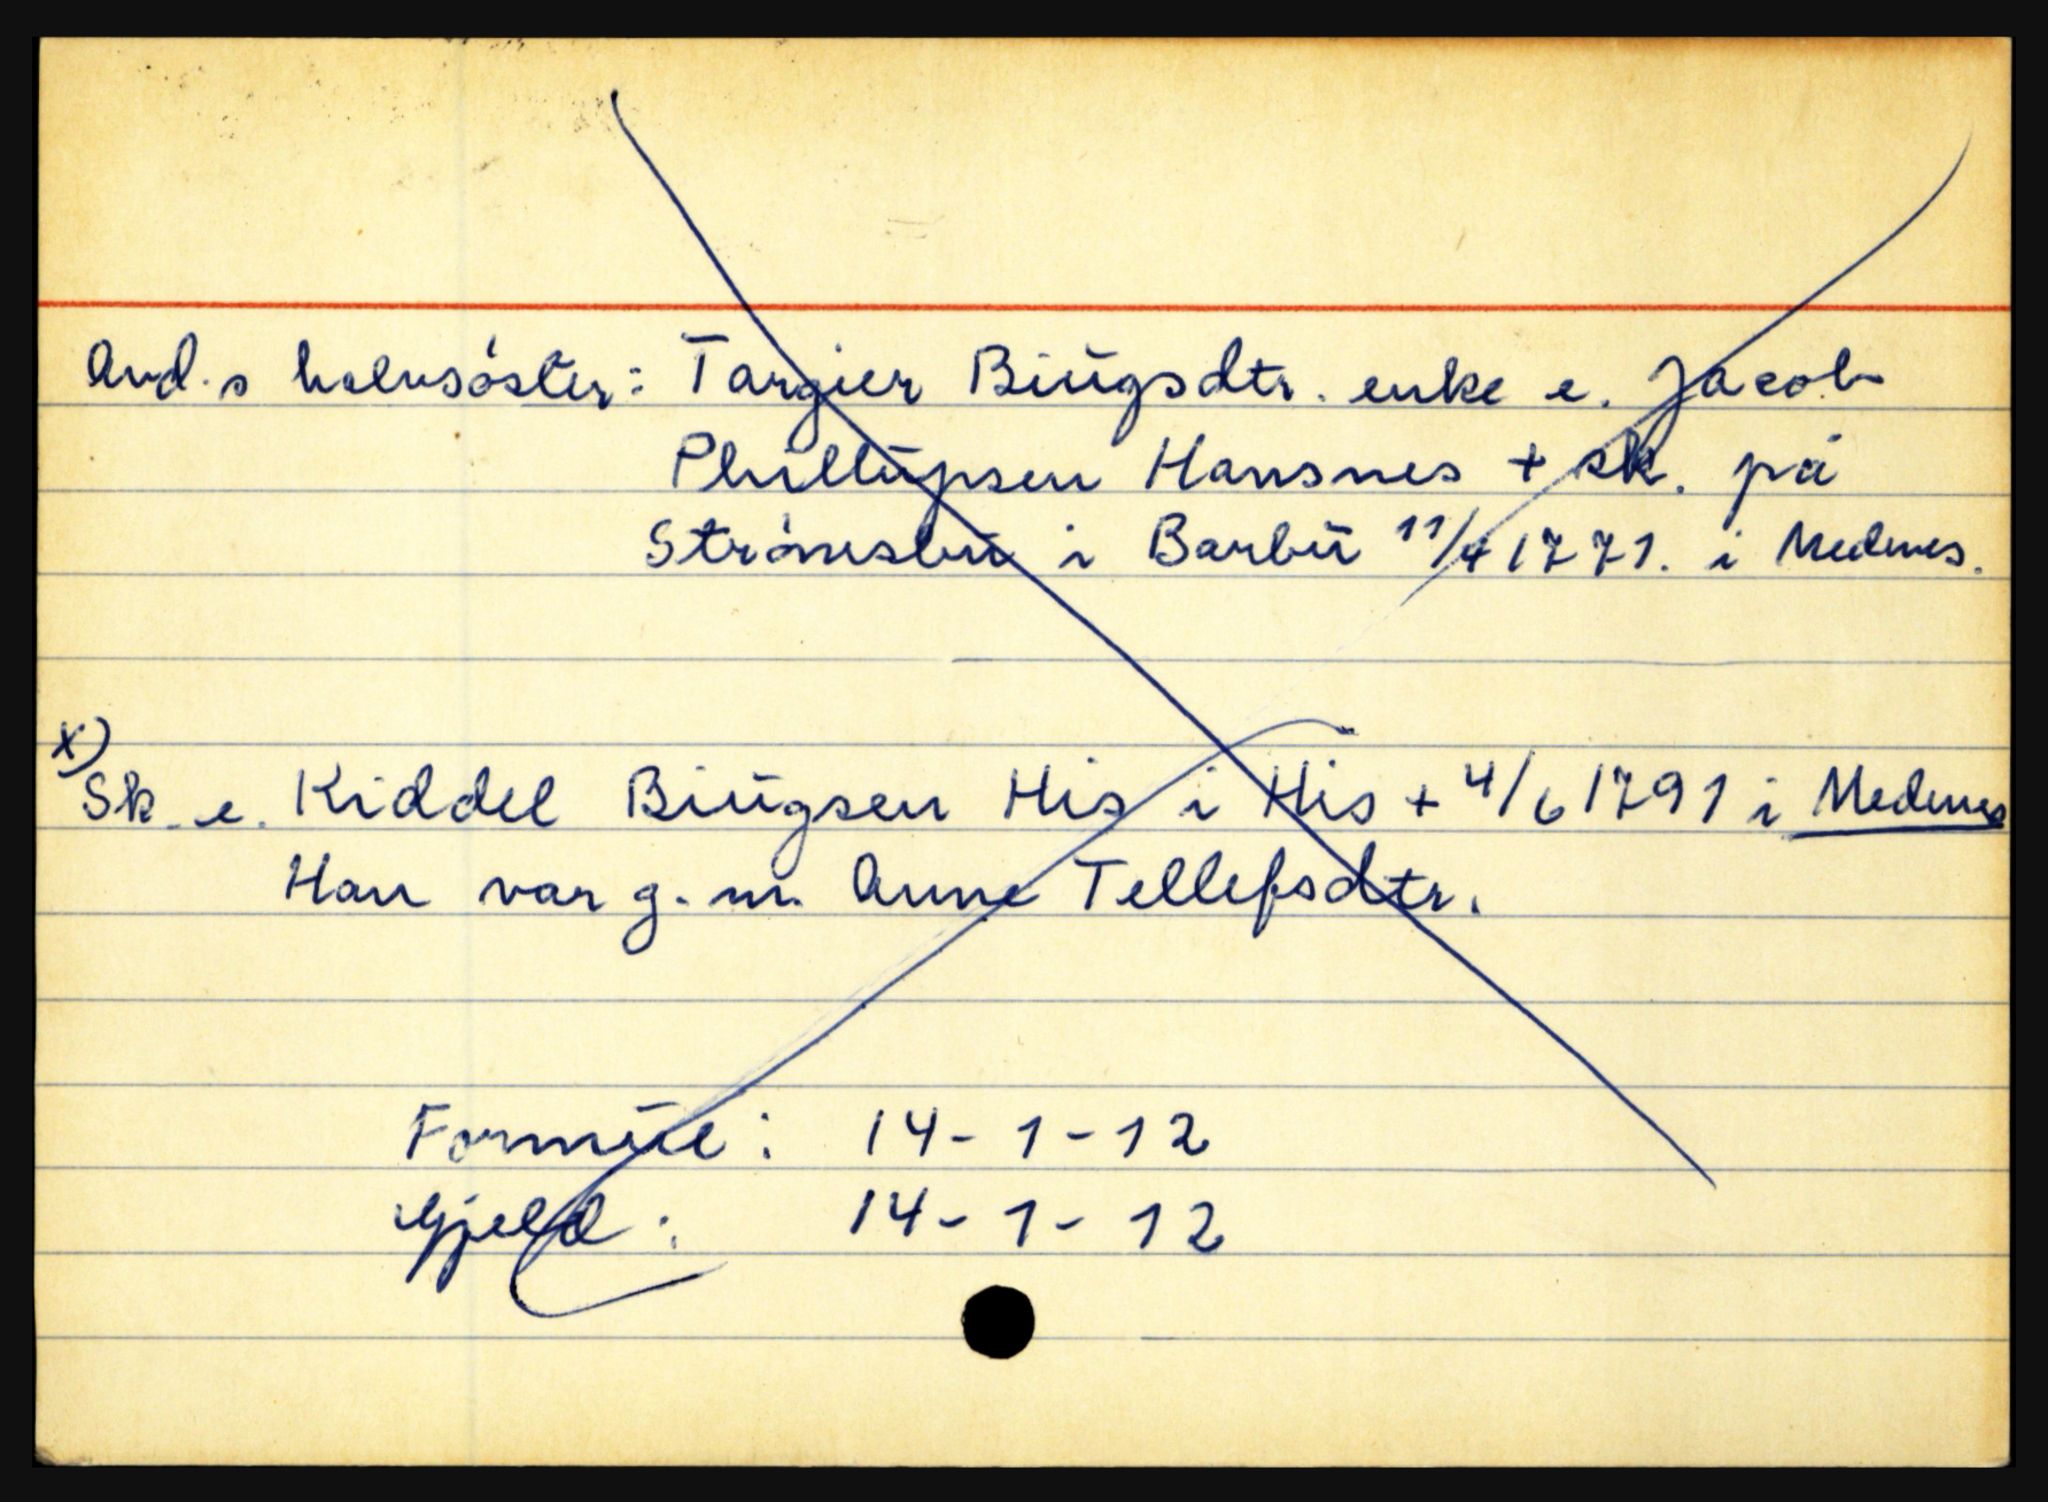 And.s halvsøster: Targier Biugsdtr. enke e. Jacob
Phillupsen Hansnes + sk. på
Strømsbu i Barbu 11/4 1771. i Nedenes.
x)
Sk. e. Kiddel Biugsen His i His + 4/6 1791 i Nedenes
Han var g. m. Anne Tellefsdtr.
Formue: 14-1-12
Gjeld: 14-1-12